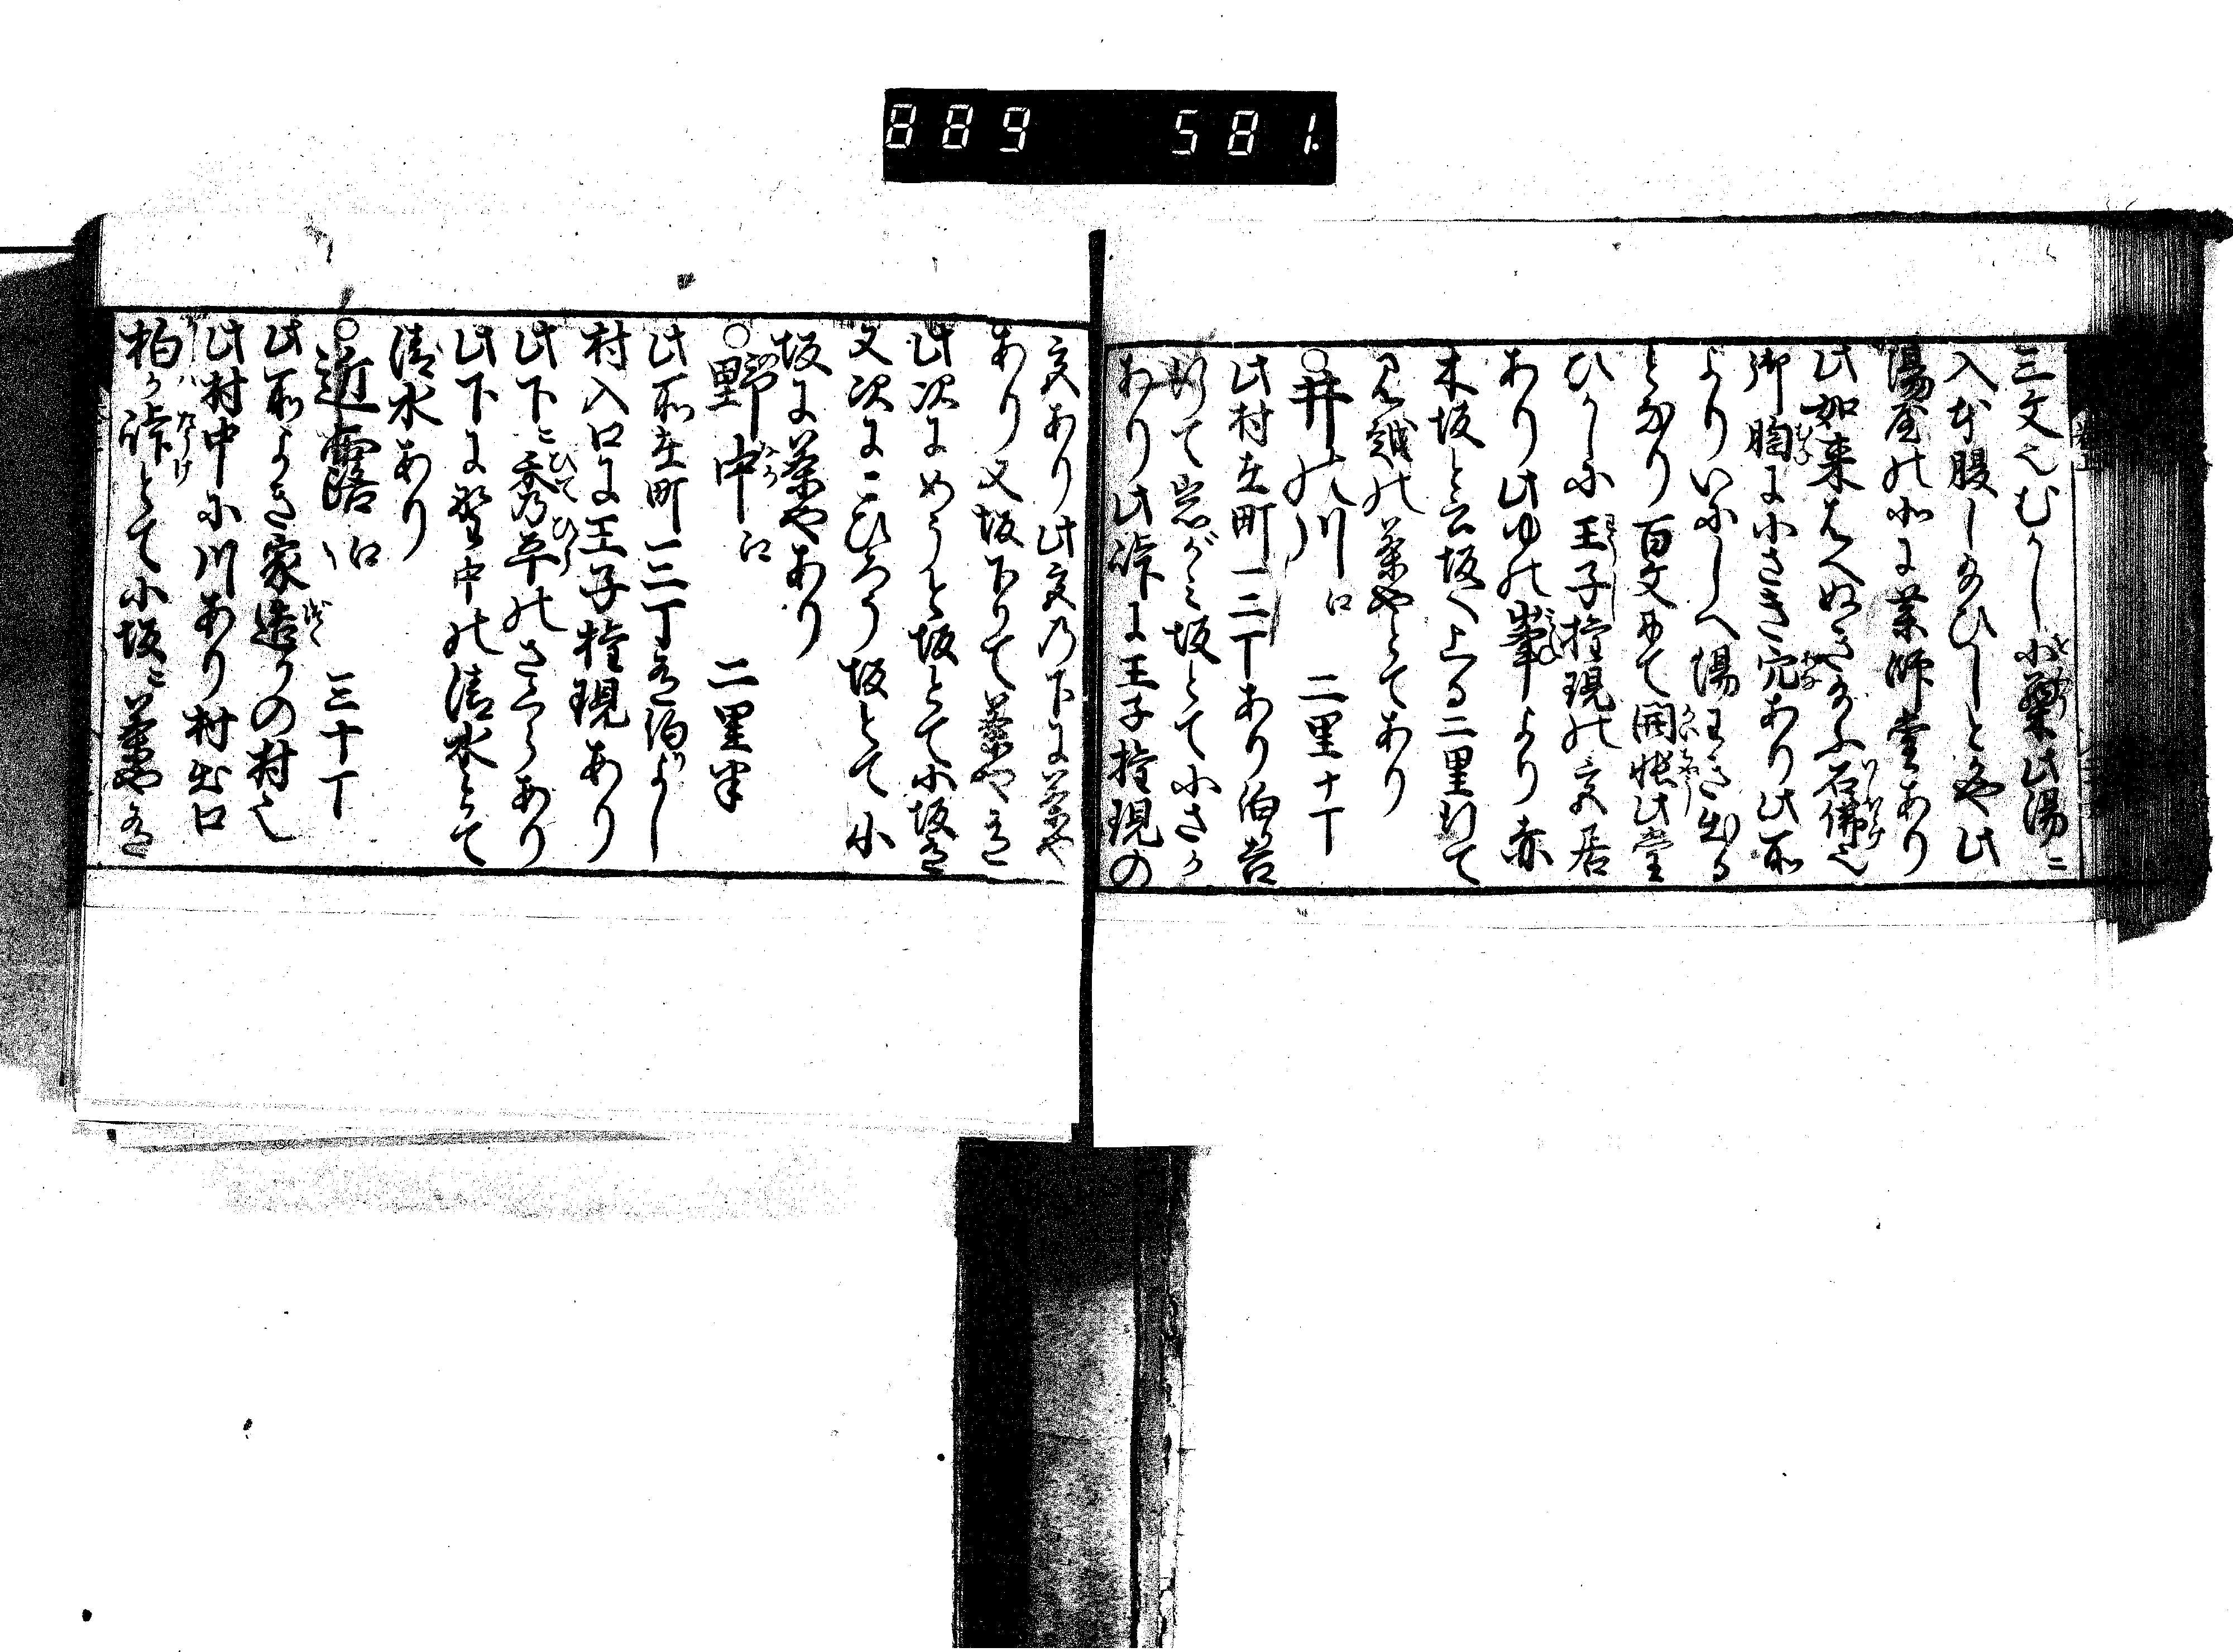 889 581.
三文也むかし小栗此湯ニ
入本腹し給ひしとかや此
湯屋の北に薬師堂あり
此如来はくぬきたまふ石佛也
御胸に小さき穴あり此所
よりいにしへ湯わき出る
となり百文にて開帳此堂
ひかしに王子権現の宮居
あり此ゆの峯より赤
木坂と云坂へ上る二里行て
見越の茶やとてあり
○井の川 江 二里十丁
此村在町一二丁あり泊吉
行て岩がミ坂とて小さか
あり此峠に王子権現の
宮あり此宮の下に茶や
あり又坂下りて茶や有
此次にめうと坂とて小坂有
又次にこひろう坂とて小
坂に茶やあり
○野中 江 二里半
此所在町一二丁有泊よし
村入口に王子権現あり
此下ニ秀平のさくらあり
此下に野中の清水とて
清水あり
○近露 江 三十丁
此所よき家造りの村也
此村中に小川あり村出口
柏か峠とて小坂ニ茶や有